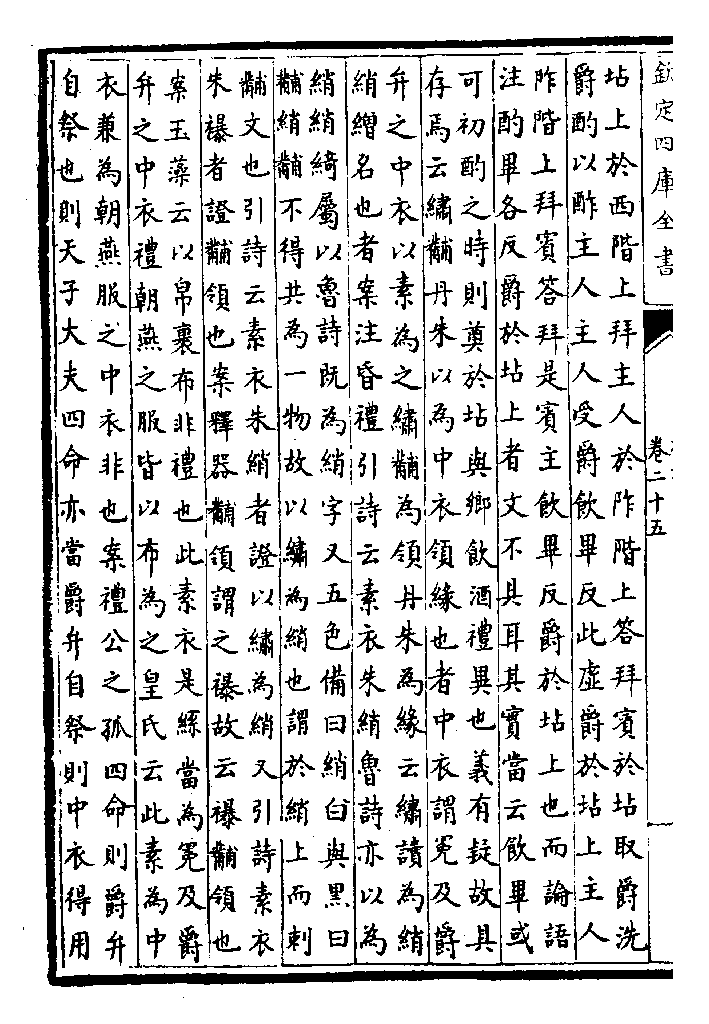 欽定四庫全書
卷二十五
坫上於西階上拜主人於阼階上答拜賓於坫取爵洗
爵酌以酢主人主人受爵飲畢反此虛爵於坫上主人
阼階上拜賓答拜是賓主飲畢反爵於坫上也而論語
注酌畢各反爵於坫上者文不具耳其實當云飲畢或
可初酌之時則奠於坫與鄉飲酒禮異也義有疑故具
存焉云繡黼丹朱以為中衣領緣也者中衣謂冕及爵
弁之中衣以素為之繡黼為領丹朱為緣云繡讀為綃
綃繒名也者案注昏禮引詩云素衣朱綃魯詩亦以為
綃綃綺屬以魯詩既為綃字又五色備曰綃白與黑曰
黼綃黼不得共為一物故以繡為綃也謂於綃上而刺
黼文也引詩云素衣朱綃者證以繡為綃又引詩素衣
朱襮者證黼領也案釋器黼領謂之襮故云襮黼領也
案玉藻云以帛裹布非禮也此素衣是絲當為冕及爵
弁之中衣禮朝燕之服皆以布為之皇氏云此素為中
衣兼為朝燕服之中衣非也案禮公之孤四命則爵弁
自祭也則天子大夫四命亦當爵弁自祭則中衣得用